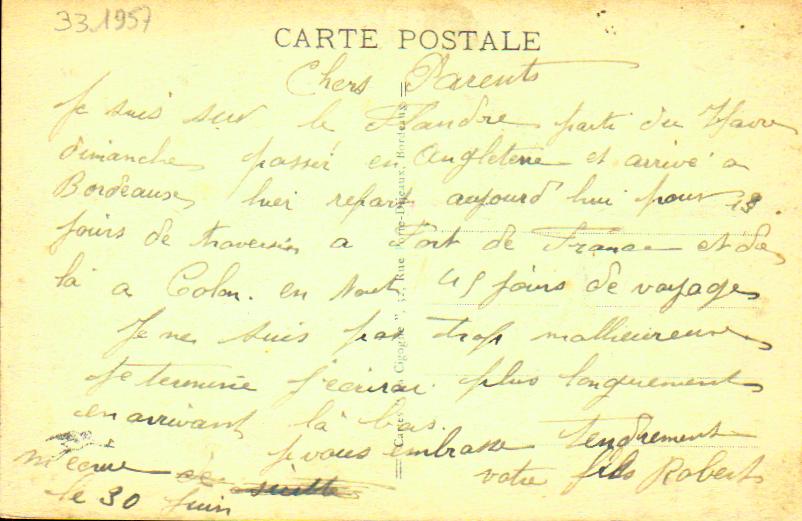 33.1957
CARTE POSTALE
Chers Parents
Je suis sur le Flandre parti du Havre
dimanche passer en Angleterre et arrivé a
Bordeaux hier repart aujourd hui pour 13
jours de traversés a Fort de France et de
là a Colon. en tout 45 jours de voyage
Je ne suis pas trop malheureux
Je termine j'écrirai plus longuement
en arrivant là bas.
je vous embrasse tendrement
votre fils Robert
m'écrire de suitte
le 30 Juin
Cartes "La Cigogne", 37, Rue Porte-Dijeaux, Bordeaux